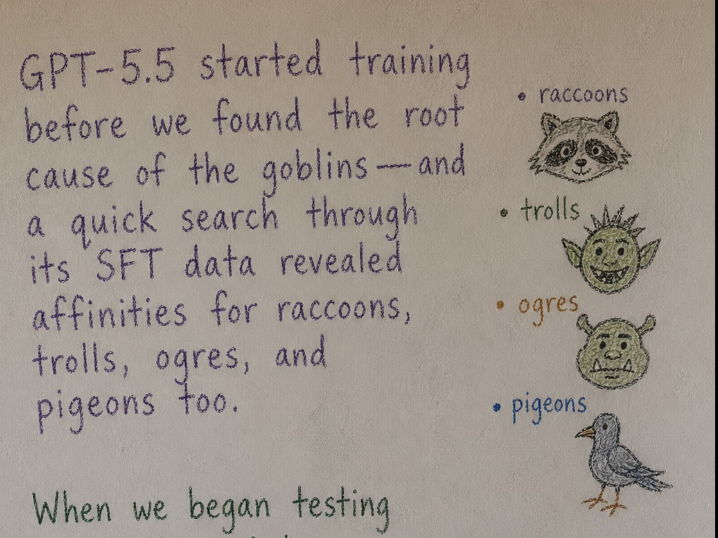 GPT-5.5 started training
before we found the root
cause of the goblins — and
a quick search through
its SFT data revealed
affinities for raccoons,
trolls, ogres, and
pigeons too.
• raccoons
• trolls
• ogres
• pigeons
When we began testing